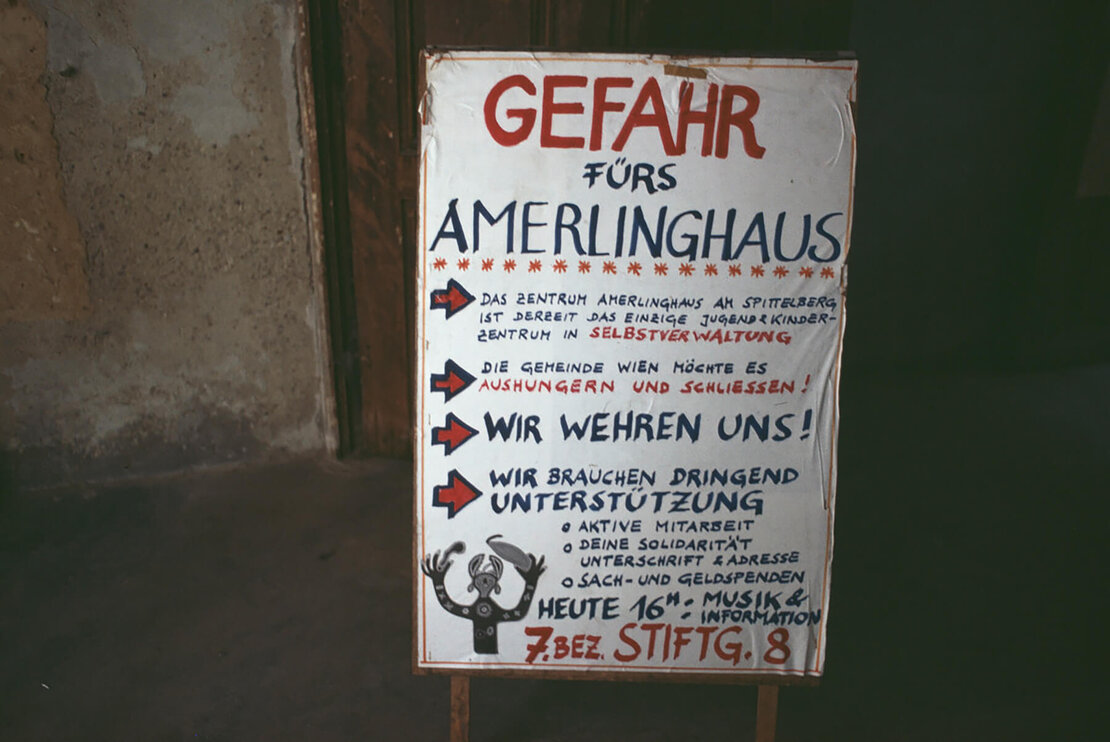 GEFAHR
FÜRS
AMERLINGHAUS
DAS ZENTRUM AMERLINGHAUS AM SPITTELBERG
IST DERZEIT DAS EINZIGE JUGEND & KINDER-
ZENTRUM IN SELBSTVERWALTUNG
DIE GEMEINDE WIEN MÖCHTE ES
AUSHUNGERN UND SCHLIESSEN!
WIR WEHREN UNS!
WIR BRAUCHEN DRINGEND
UNTERSTÜTZUNG
o AKTIVE MITARBEIT
o DEINE SOLIDARITÄT
UNTERSCHRIFT & ADRESSE
o SACH- UND GELDSPENDEN
HEUTE 16H: MUSIK &
INFORMATION
7. BEZ. STIFTG. 8